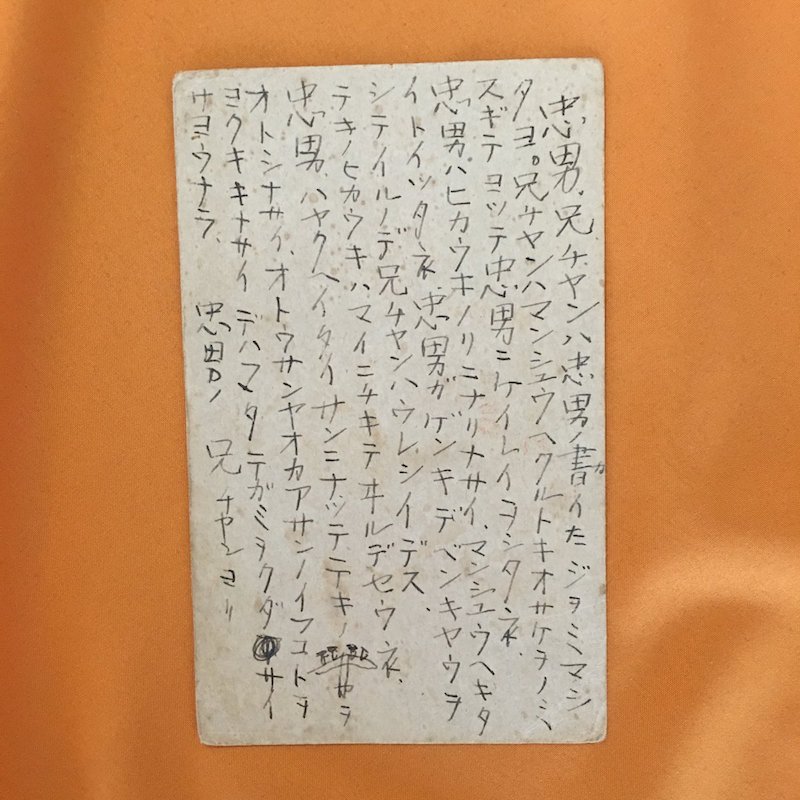 忠男、兄チヤンハ忠男ノ書イたジヲミマシ
タヨ。兄チヤンハマンシユウヘクルトキオサケヲノミ
スギテヨツテ忠男ニケイレイヲシタネ、
忠男ハヒカウキノリニナリナサイ、マンシユウヘキタ
イトイツタネ、忠男ガゲンキデベンキヤウヲ
シテイルノデ兄チヤンハウレシイデス、
テキノヒカウキハマイニチキテヰルデセウネ、
忠男ハヤクヘイタイサンニナツテテキノ
オトシナサイ、オトウサンヤオカアサンノイフコトヲ
ヨクキキナサイデハマタテガミヲクダサイ
サヨウナラ、
忠男ノ兄チヤンヨリ